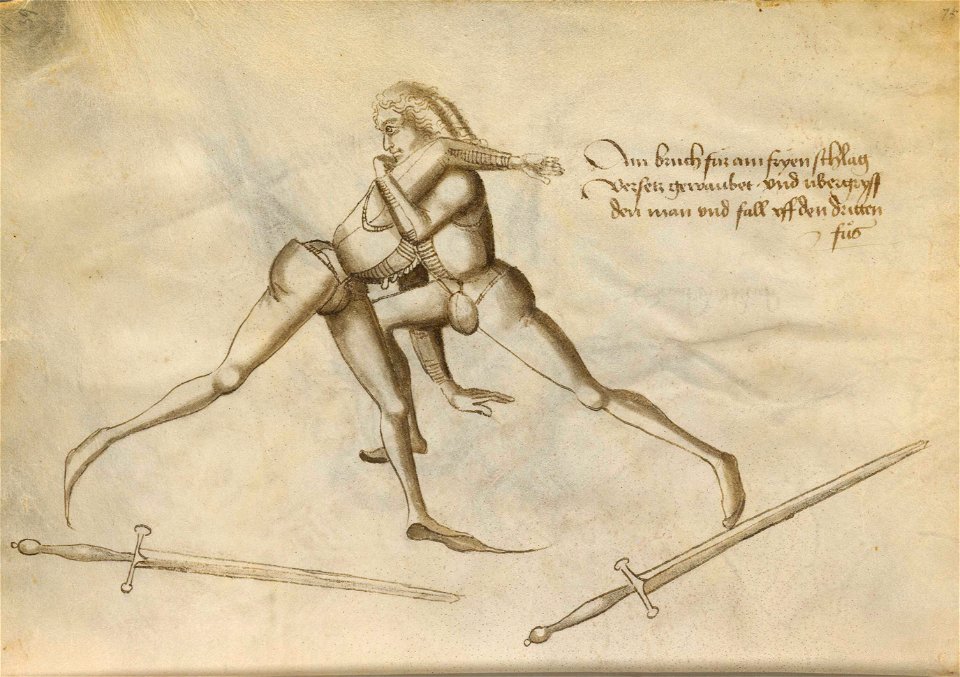 Ain bruch für ain fryen schlag
versetz gewaubet · vnd vbergryff
den man vnd fall vff den dritten
fůs